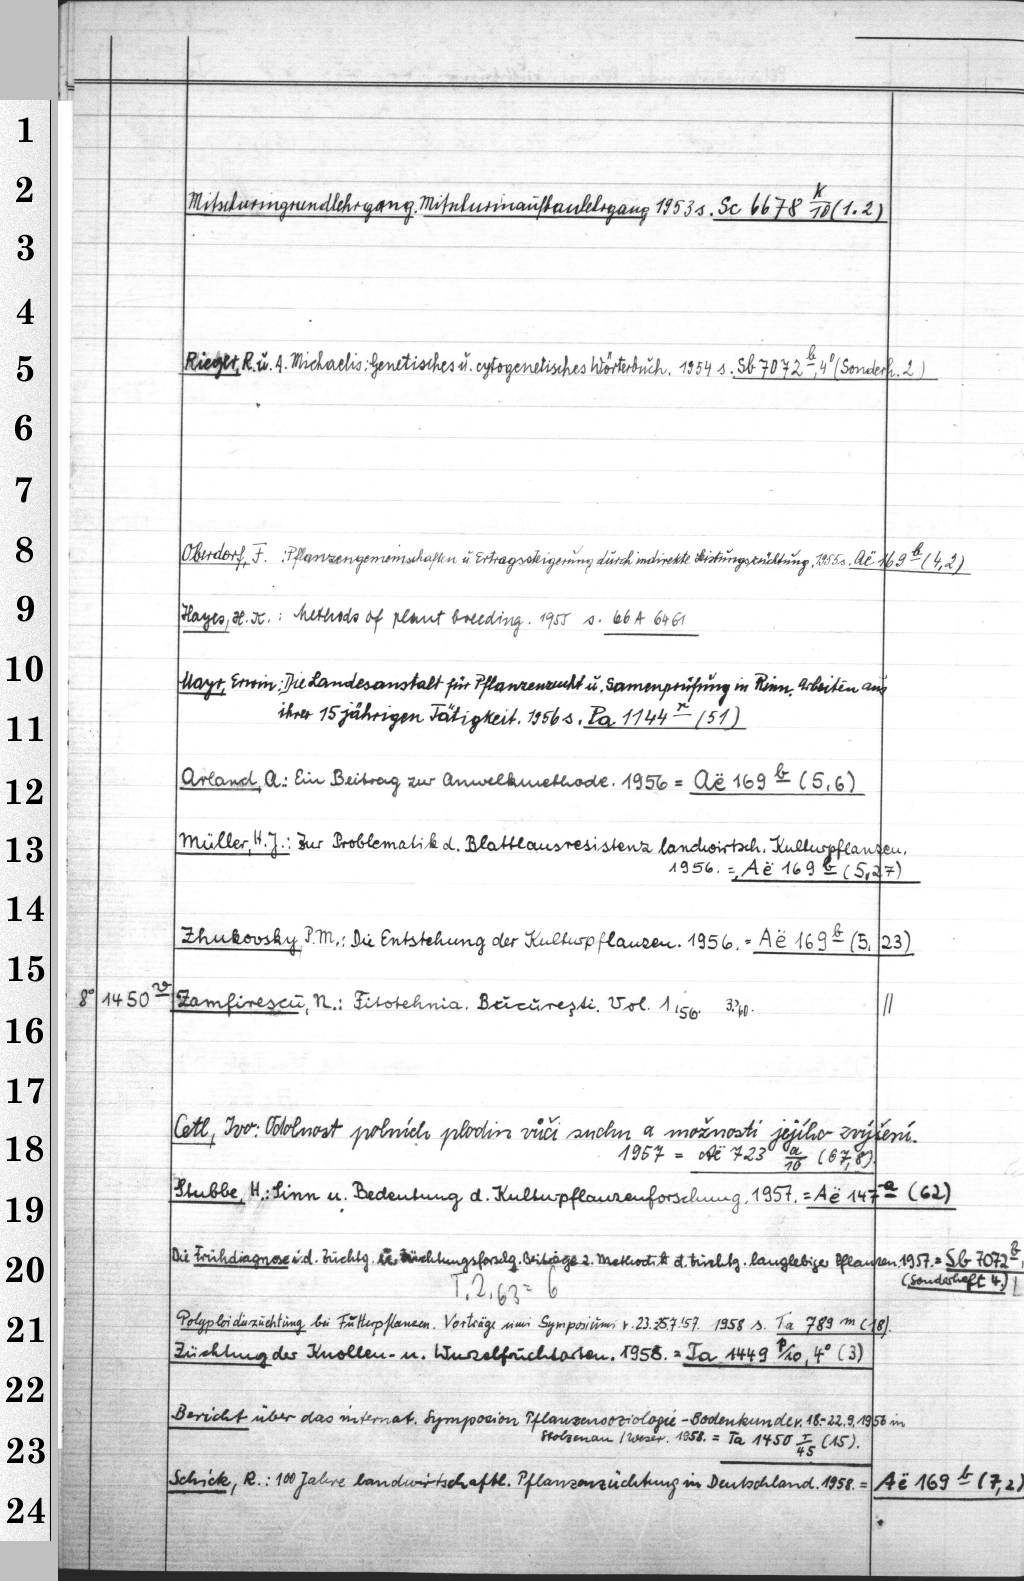 1
2
Mitschuringrundlehrgang. Mitschurinaufbaulehrgang 1953 s. Sc 6678 k/10 (1.2)
3
4
5
Rieger, R. u. A. Michaelis: Genetisches u. cytogenetisches Wörterbuch. 1954 s. Sb 7072 b, 4° (Sonderh. 2)
6
7
8
Oberdorf, F. : Pflanzengemeinschaften u Ertragssteigerung durch indirekte Leistungszüchtung. 1955 s. Aë 169 b (4,2)
9
Hayes, H. K. : Methods of plant breeding. 1955 s. 66 A 6461
10
Mayr, Erwin: Die Landesanstalt für Pflanzenzucht u. Samenprüfung in Rinn. Arbeiten aus
ihrer 15 jährigen Tätigkeit. 1956 s. Pa 1144 r (51)
11
12
Arland, A.: Ein Beitrag zur Anwelkmethode. 1956 = Aë 169 b (5,6)
13
Müller, H. J.: Zur Problematik d. Blattlausresistenz landwirtsch. Kulturpflanzen.
1956. = Aë 169 b (5,27)
14
Zhukovsky P. M.: Die Entstehung der Kulturpflanzen. 1956. = Aë 169 b (5, 23)
15
8° 1450 v Zamfirescu, N.: Fitotehnia. Bucureşti. Vol. 1,56. //
16
17
Cetl, Ivo: Odolnost polních plodin vůči suchu a možnosti jejího zvýšení.
18
1957 = Aë 723 a/10 (67,8)
19
Stubbe, H.: Sinn u. Bedeutung d. Kulturpflanzenforschung. 1957. = Aë 147 a (62)
20
Die Frühdiagnose i. d. Züchtg. u. Züchtungsforschg. Beiträge z. Methodik d. Züchtg. langlebiger Pflanzen. 1957. = Sb 7072 b,
(Sonderheft 4.)
T. 2, 63 = 6
21
Polyploidiezüchtung bei Futterpflanzen. Vorträge v. 23.-25.7.'57. 1958 s. Ta 789 m (18).
Züchtung der Knollen- u. Wurzelfruchtarten. 1958. = Ta 1449 p/20, 4° (3)
22
Bericht über das internat. Symposion Pflanzensoziologie - Bodenkunde v. 18.-22.9.1956 in
23
Stolzenau / Weser. 1958. = Ta 1450 r/45 (15).
Schick, R.: 100 Jahre landwirtschaftl. Pflanzenzüchtung in Deutschland. 1958. = Aë 169 b (7,2)
24